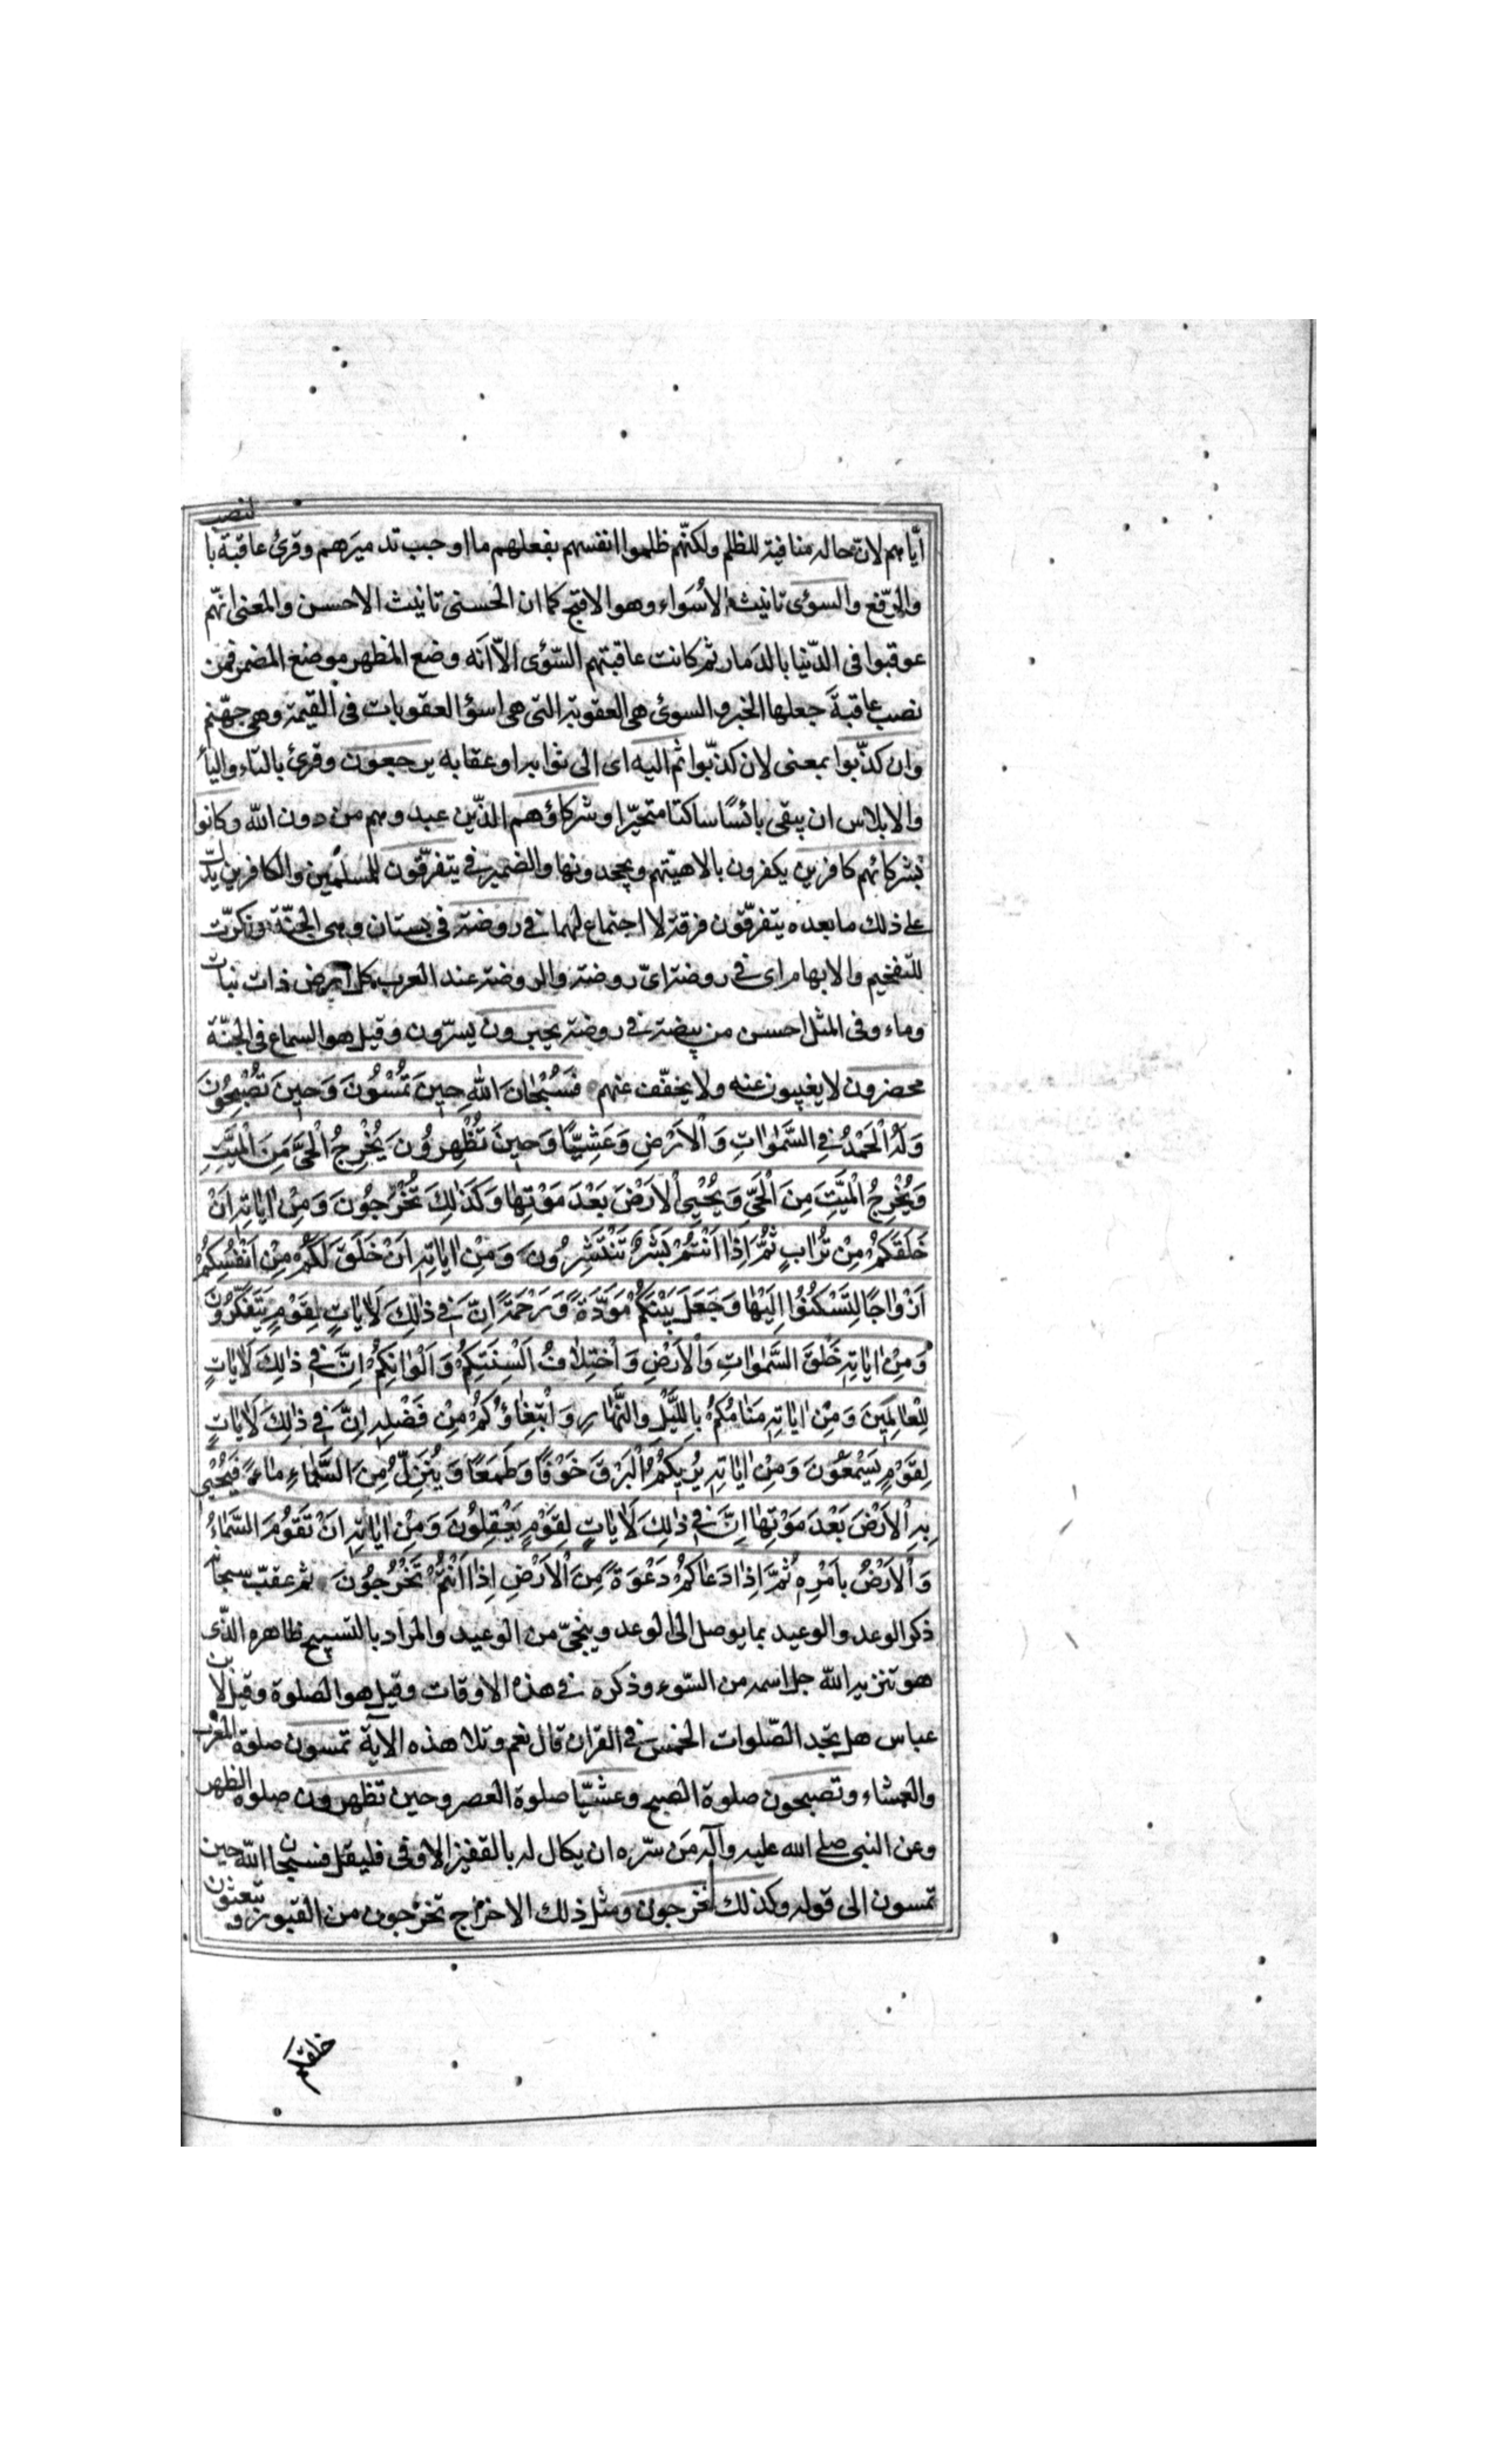 ايّاهم لانّ حاله منافية للظلم ولكنّهم ظلموا انفسهم بفعلهم ما اوجب تدميرهم وقرئ عاقبة بالنصب
والرّفع والسوؤى تانيث الاسواء وهو الاقبح كما ان الحسنى تانيث الاحسن والمعنى انّهم
عوقبوا فى الدّنيا بالدمار ثم كانت عاقبتهم السّوؤى الّا انّه وضع المظهر موضع المضمر فمن
نصب عاقبة جعلها الخبر والسوؤى هى العقوبة التى هى اسوؤ العقوبات فى القيمة وهى جهنّم
وان كذّبوا بمعنى لان كذّبوا ثم اليه اى الى ثوابه او عقابه يرجعون وقرئ بالتاء والياء
والابلاس ان يبقى بائسًا ساكتا متحيّرا وشركاؤهم الذّين عبدوهم من دون الله وكانوا
بشركائهم كافرين يكفرون بالاهيّتهم ويجحدونها والضمير فى يتفرّقون للمسلمين والكافرين يدلّ
على ذلك ما بعده يتفرّقون فرقة لا اجتماع لهما فى روضة فى بستان وهى الجنّة ونكرّت
للتفخيم والابهام اى فى روضة اىّ روضة والروضة عند العرب كل ارض ذات نبات
وماء وفى المثل احسن من بيضة فى روضة يحبرون يسرّون وقيل هو السماع فى الجنّة
محضرون لا يغيبون عنه ولا يخفّف عنهم فَسُبْحَانَ اللهِ حِينَ تُمْسُونَ وَحِينَ تُصْبِحُونَ
وَلَهُ الْحَمْدُ فِي السَّمٰوَاتِ وَالْاَرْضِ وَعَشِيًّا وَحِينَ تُظْهِرُونَ يُخْرِجُ الْحَيَّ مِنَ الْمَيِّتِ
وَيُخْرِجُ الْمَيِّتَ مِنَ الْحَيِّ وَيُحْيِي الْاَرْضَ بَعْدَ مَوْتِهَا وَكَذٰلِكَ تُخْرَجُونَ وَمِنْ اٰيَاتِهِ اَنْ
خَلَقَكُمْ مِنْ تُرَابٍ ثُمَّ اِذَا اَنْتُمْ بَشَرٌ تَنْتَشِرُونَ وَمِنْ اٰيَاتِهِ اَنْ خَلَقَ لَكُمْ مِنْ اَنْفُسِكُمْ
اَزْوَاجًا لِتَسْكُنُوا اِلَيْهَا وَجَعَلَ بَيْنَكُمْ مَوَدَّةً وَرَحْمَةً اِنَّ فِي ذٰلِكَ لَاٰيَاتٍ لِقَوْمٍ يَتَفَكَّرُونَ
وَمِنْ اٰيَاتِهِ خَلْقُ السَّمٰوَاتِ وَالْاَرْضِ وَاخْتِلَافُ اَلْسِنَتِكُمْ وَاَلْوَانِكُمْ اِنَّ فِي ذٰلِكَ لَاٰيَاتٍ
لِلْعَالِمِينَ وَمِنْ اٰيَاتِهِ مَنَامُكُمْ بِاللَّيْلِ وَالنَّهَارِ وَابْتِغَاؤُكُمْ مِنْ فَضْلِهِ اِنَّ فِي ذٰلِكَ لَاٰيَاتٍ
لِقَوْمٍ يَسْمَعُونَ وَمِنْ اٰيَاتِهِ يُرِيكُمُ الْبَرْقَ خَوْفًا وَطَمَعًا وَيُنَزِّلُ مِنَ السَّمَاءِ مَاءً فَيُحْيِي
بِهِ الْاَرْضَ بَعْدَ مَوْتِهَا اِنَّ فِي ذٰلِكَ لَاٰيَاتٍ لِقَوْمٍ يَعْقِلُونَ وَمِنْ اٰيَاتِهِ اَنْ تَقُومَ السَّمَاءُ
وَالْاَرْضُ بِاَمْرِهِ ثُمَّ اِذَا دَعَاكُمْ دَعْوَةً مِنَ الْاَرْضِ اِذَا اَنْتُمْ تَخْرُجُونَ ثم عقّب سبحانه
ذكر الوعد والوعيد بما يوصل الى الوعد وينجّى من الوعيد والمراد بالتسبيح ظاهره الذّى
هو تنزيه الله جل اسمه من السّوء وذكره فى هذه الاوقات وقيل هو الصلوة وقيل لابن
عباس هل تجد الصّلوات الخمس فى القران قال نعم وتلا هذه الآية تمسون صلوة المغرب
والعشاء وتصبحون صلوة الصبح وعشيّا صلوة العصر وحين تظهرون صلوة الظهر
وعن النبى صلى الله عليه وآله من سرّه ان يكال له بالقفيز الاوفى فليقل فسبحان الله حين
تمسون الى قوله وكذلك تخرجون ومثل ذلك الاخراج تخرجون من القبور وتبعثون
خلقكم